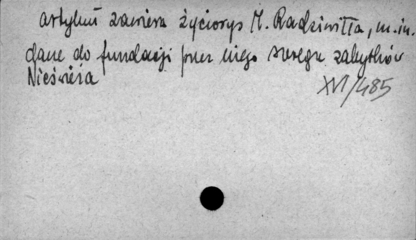 artykuł zawiera życiorys M. Radziwiłła, m.in.
dane do fundacji przez niego szeregu zabytków
Nieświeża
XVI/485